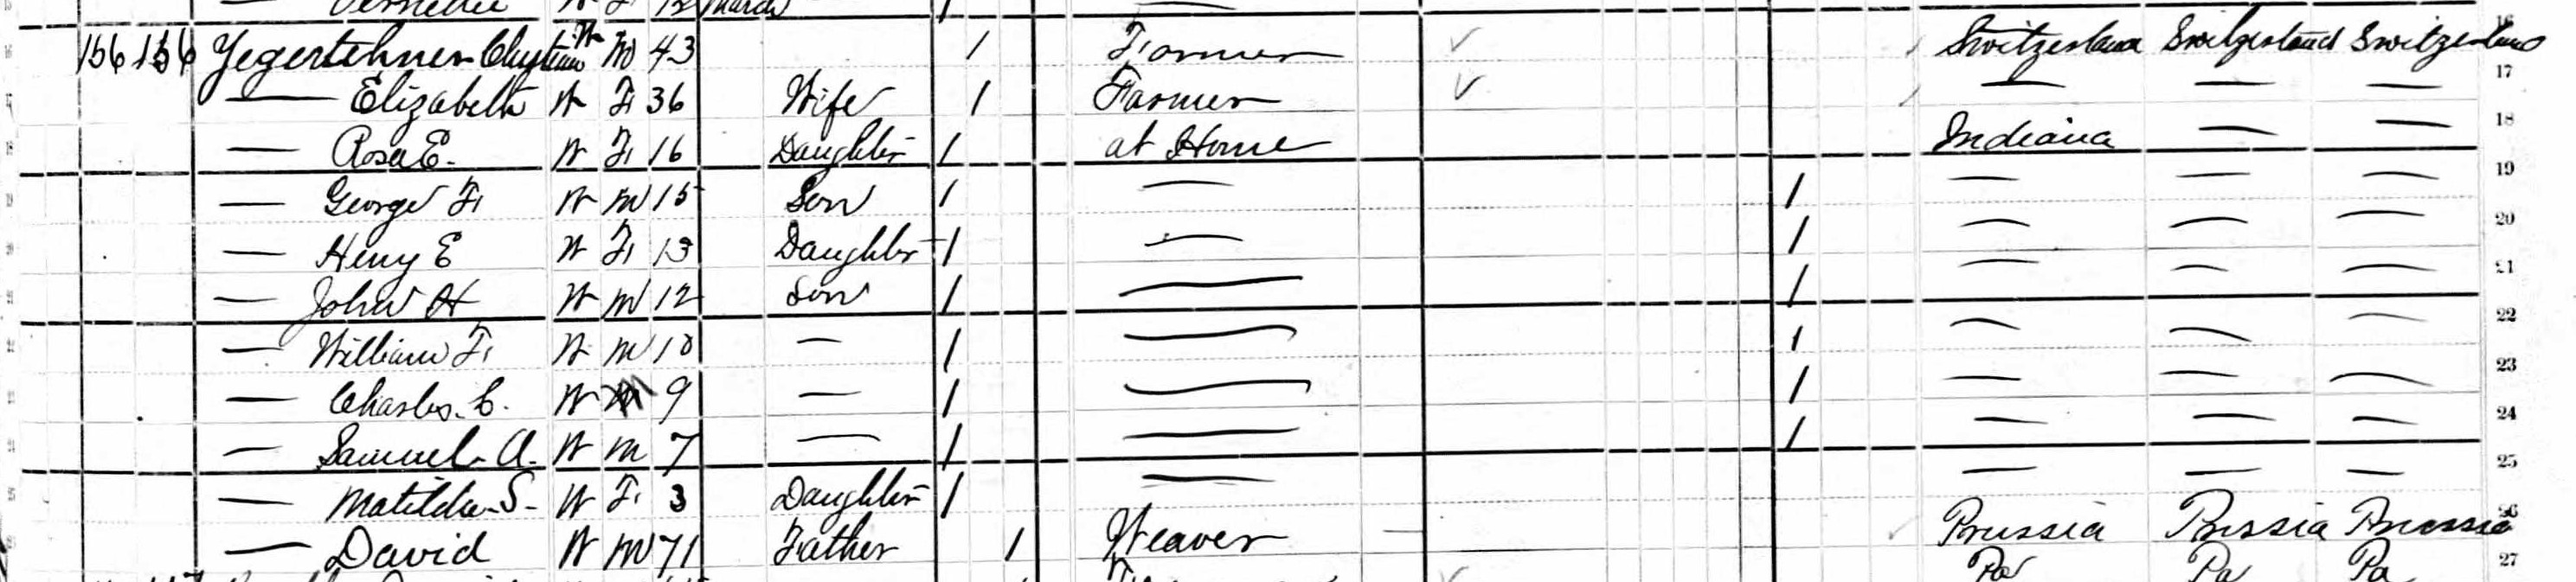 W F 12 March 1
156 156 Yegerlehner W M 43 1 Farmer Switzerland Switzerland Switzerland 16
— Elizabeth W F 36 Wife 1 Farmer — — — 17
— Rosa E. W F 16 Daughter 1 at Home Indiana — — 18
— George F W M 15 Son 1 — 1 — — — 19
— Heny E W F 13 Daughter 1 — 1 — — — 20
— John H W M 12 Son 1 — 1 — — — 21
— William F W M 10 — 1 — 1 — — — 22
— Charles C. W M 9 — 1 — 1 — — — 23
— Samuel A. W M 7 — 1 — 1 — — — 24
— Matilda S. W F 3 Daughter 1 — — — — 25
— David W M 71 Father 1 Weaver — Prussia Prussia Prussia 26
Pa Pa Pa 27